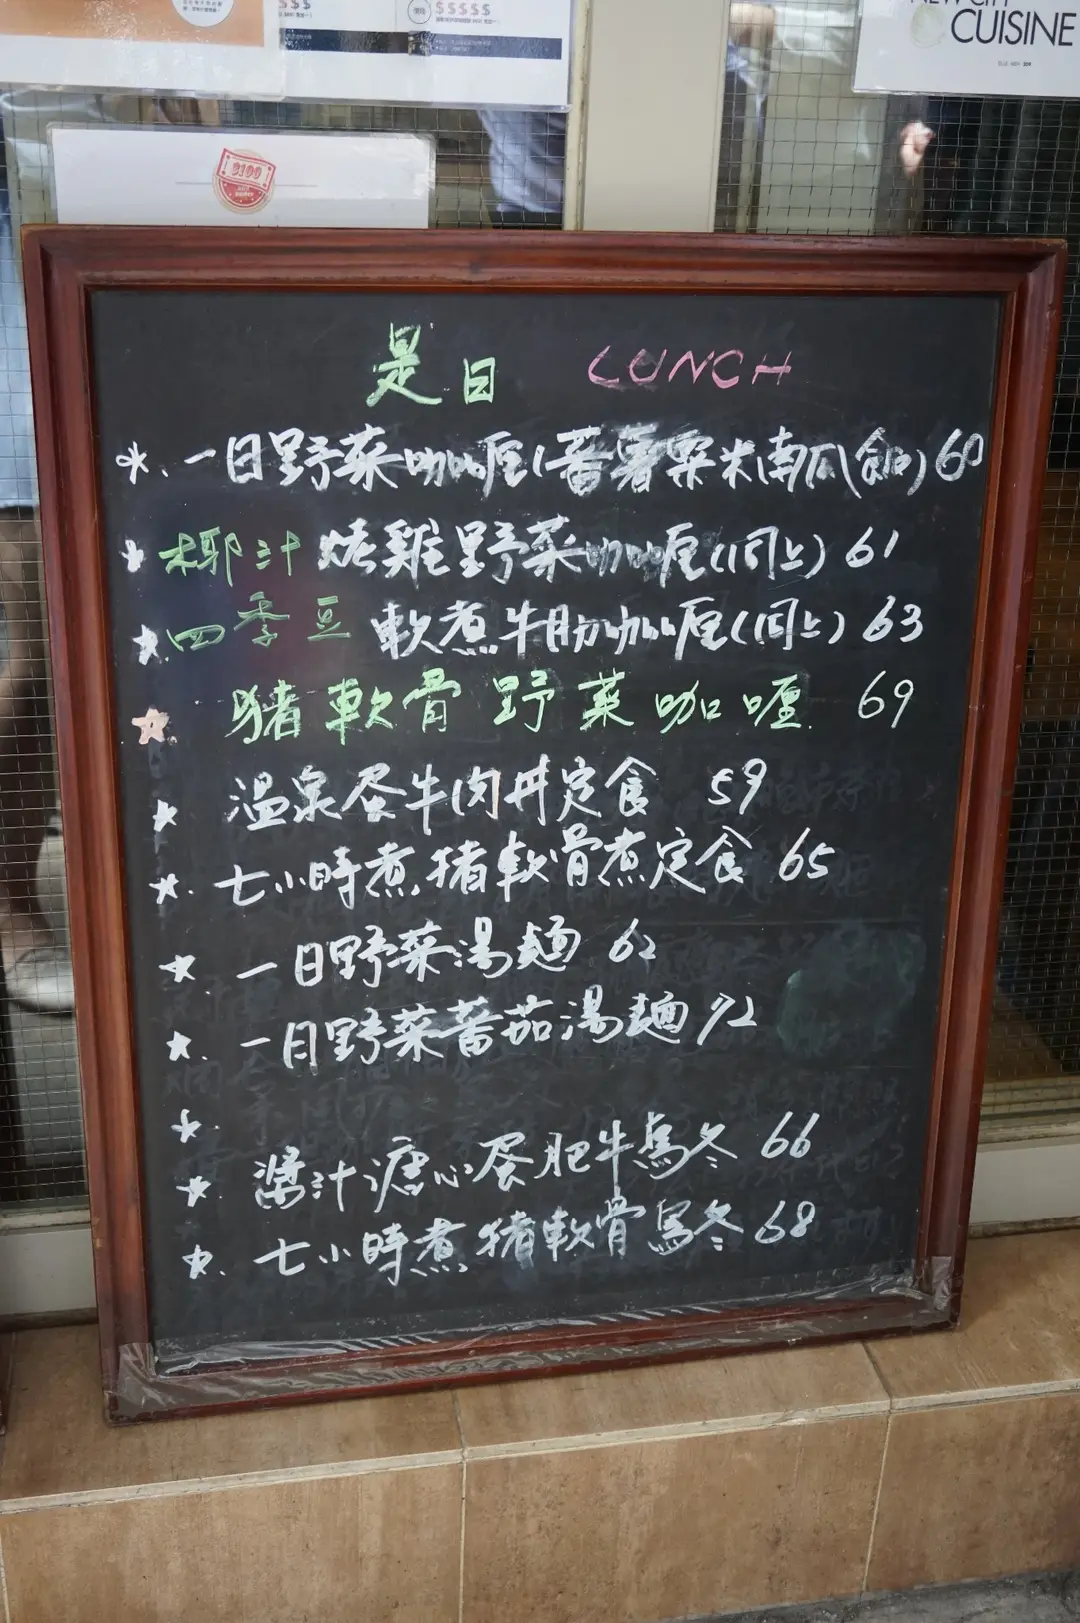 $$$
$$$$$
NEW CITY
CUISINE
$100
是日 LUNCH
一日野菜咖喱(蕃薯粟米南瓜飯) 60
椰汁烤雞野菜咖喱(同上) 61
四季豆軟煮牛肋咖喱(同上) 63
猪軟骨野菜咖喱 69
温泉蛋牛肉丼定食 59
七小時煮猪軟骨煮定食 65
一日野菜湯麺 62
一日野菜蕃茄湯麺 72
漿汁溏心蛋肥牛烏冬 66
七小時煮猪軟骨烏冬 68